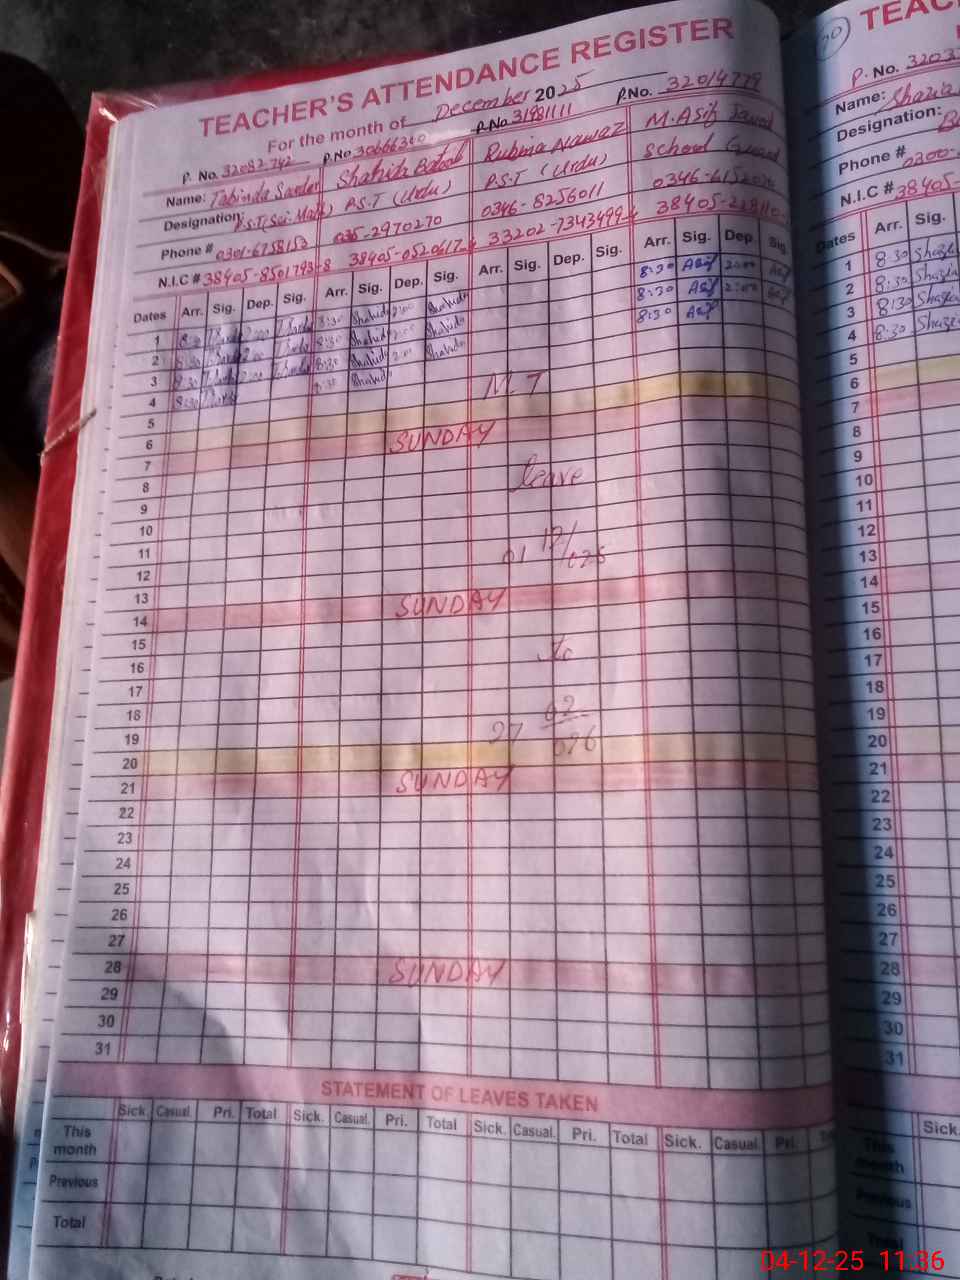 TEACHER'S ATTENDANCE REGISTER
For the month of December 2025
P. No. 32082742 P.No 30666300 P.No 31981111 P.No. 32014779
Name: Tabinda Shahida Batool Rubina Nawaz M. Asif Javed
Designation P.S.T (Sci. Math) P.S.T (Urdu) P.S.T (Urdu) School Guard
Phone # 0301-6758153 035-2970270 0346-8256011
N.I.C # 38405-8501793-8 38405-0520617-4 33202-7343499-4
Dates Arr. Sig. Dep. Sig. Arr. Sig. Dep. Sig. Arr. Sig. Dep. Sig. Arr. Sig. Dep. Sig.
1 8:30 2:00 8:30 Shahida 2:00 Shahida 8:30 Asif 2:00 Asif
2 8:30 2:00 8:30 Shahida 2:00 Shahida 8:30 Asif 2:00 Asif
3 8:30 2:00 8:30 Shahida 2:00 Shahida 8:30 Asif
4 8:30 8:30 Shahida
5 M.T
6
7 SUNDAY
8 leave
9
10
11 01 12/025
12
13
14 SUNDAY
15
16 To
17
18
19 27 02/026
20
21 SUNDAY
22
23
24
25
26
27
28 SUNDAY
29
30
31
STATEMENT OF LEAVES TAKEN
Sick. Casual. Pri. Total Sick. Casual. Pri. Total Sick. Casual. Pri. Total Sick. Casual. Pri.
This month
Previous
Total
70
TEAC
P. No.
Name: Shazia
Designation:
Phone # 0300-
N.I.C # 38405-
Dates Arr. Sig.
1 8:30
2 8:30
3 8:30
4 8:30
5
6
7
8
9
10
11
12
13
14
15
16
17
18
19
20
21
22
23
24
25
26
27
28
29
30
31
Sick.
This month
Previous
Total
04-12-25 11:36